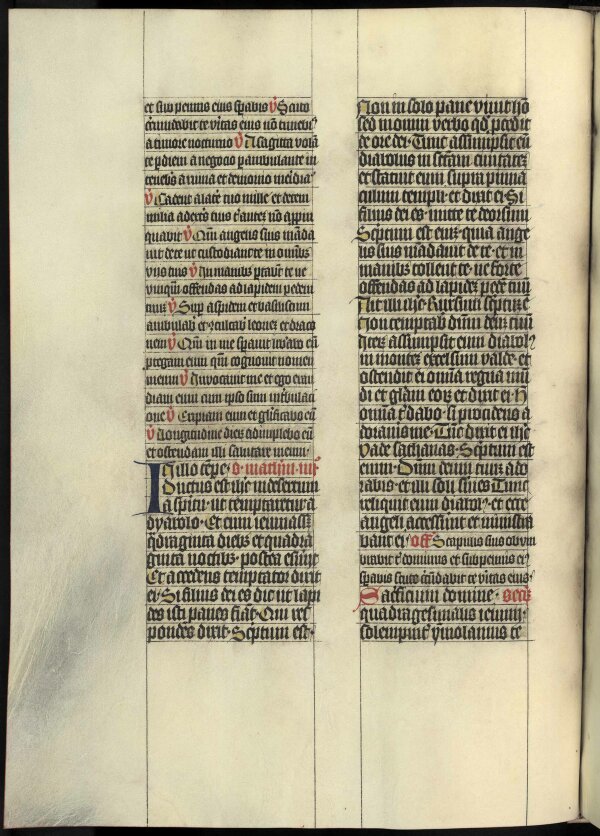 et sub pennis eius sperabis V Scuto
circumdabit te veritas eius non timebis
a timore nocturno V A sagitta volan
te per diem a negocio perambulante in
tenebris a ruina et demonio meridiano
V Cadent a latere tuo mille et decem
milia a dextris tuis tibi autem non appropin
quabit V Quoniam angelis suis manda
uit de te ut custodiant te in omnibus
viis tuis V In manibus portabunt te ne
vnquam offendas ad lapidem pedem
tuum V Super aspidem et basiliscum
ambulabis et conculcabis leonem et draco
nem V Quoniam in me sperauit liberabo eum
protegam eum quoniam cognouit nomen
meum V Inuocauit me et ego exau
diam eum cum ipso sum in tribulaci
one V Eripiam eum et glorificabo eum
V Longitudine dierum adimplebo eum
et ostendam illi salutare meum
In illo tempore S. mattheum iiij
Ductus est ihesus in desertum
a spiritu ut temptaretur a
dyabolo Et cum ieiunasset
quadraginta diebus et quadra
ginta noctibus postea esuriit
Et accedens temptator dixit
ei Si filius dei es dic ut lapi
des isti panes fiant Qui res
pondens dixit Scriptum est
Non in solo pane viuit homo
sed in omni verbo quod procedit
de ore dei Tunc assumpsit eum
diabolus in sanctam ciuitatem
et statuit eum supra pinna
culum templi et dixit ei Si
filius dei es mitte te deorsum
Scriptum est enim quia ange
lis suis mandauit de te et in
manibus tollent te ne forte
offendas ad lapidem pedem tuum
Ait illi ihesus Rursum scriptum est
Non temptabis dominum deum tuum
Iterum assumpsit eum diabolus
in montem excelsum valde et
ostendit ei omnia regna mun
di et gloriam eorum et dixit ei H
omnia tibi dabo si procidens a
doraueris me Tunc dixit ei ihesus
Vade sathanas Scriptum est
enim Dominum deum tuum ado
rabis et illi soli seruies Tunc
reliquit eum diabolus et ecce
angeli accesserunt et ministra
bant ei off Scapulis suis obum
brabit tibi dominus et sub pennis eius
sperabis scuto circumdabit te veritas eius
Sacrificium domine secreta
quadragesimalis ieiunii
solempniter ymolamus te